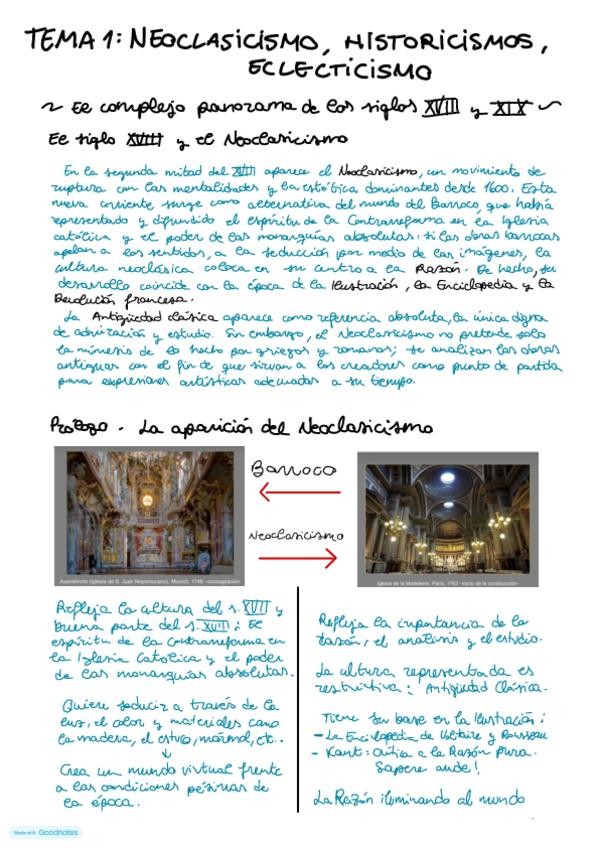 TEMA 1: NEOCLASICISMO, HISTORICISMOS,
ECLECTICISMO
~ El complejo panorama de los siglos XVIII y XIX ~
El siglo XVIII y el Neoclasicismo
En la segunda mitad del XVIII aparece el Neoclasicismo, un movimiento de
ruptura con las mentalidades y la estética dominantes desde 1600. Esta
nueva corriente surge como alternativa del mundo del Barroco, que había
representado y difundido el espíritu de la Contrarreforma en la Iglesia
católica y el poder de las monarquías absolutas: si las obras barrocas
apelan a los sentidos, a la seducción por medio de las imágenes, la
cultura neoclásica coloca en su centro a la Razón. De hecho, su
desarrollo coincide con la época de la Ilustración, la Enciclopedia y la
Revolución francesa.
La Antigüedad clásica aparece como referencia absoluta, la única digna
de admiración y estudio. Sin embargo, el Neoclasicismo no pretende solo
la mímesis de lo hecho por griegos y romanos; se analizan las obras
antiguas con el fin de que sirvan a los creadores como punto de partida
para expresiones artísticas adecuadas a su tiempo.
Prólogo. La aparición del Neoclasicismo
Barroco
Neoclasicismo
Asamkirche (Iglesia de S. Juan Nepomuceno), Munich, 1746 -consagración-
Iglesia de la Madeleine, París, 1763 -inicio de la construcción-
Refleja la cultura del s. XVII y
buena parte del s. XVIII: El
espíritu de la Contrarreforma en
la Iglesia Católica y el poder
de las monarquías absolutas.
Quiere seducir a través de la
luz, el color y materiales como
la madera, el estuco, mármol, etc..
↓
Crea un mundo virtual frente
a las condiciones pésimas de
la época.
Refleja la importancia de la
razón, el analisis y el estudio.
La cultura representada es
restrictiva: Antigüedad Clásica.
Tiene su base en la Ilustración:
- La Enciclopedia de Voltaire y Rousseau
- Kant: Crítica a la Razón Pura.
Sapere aude!
La Razón iluminando al mundo
Made with Goodnotes